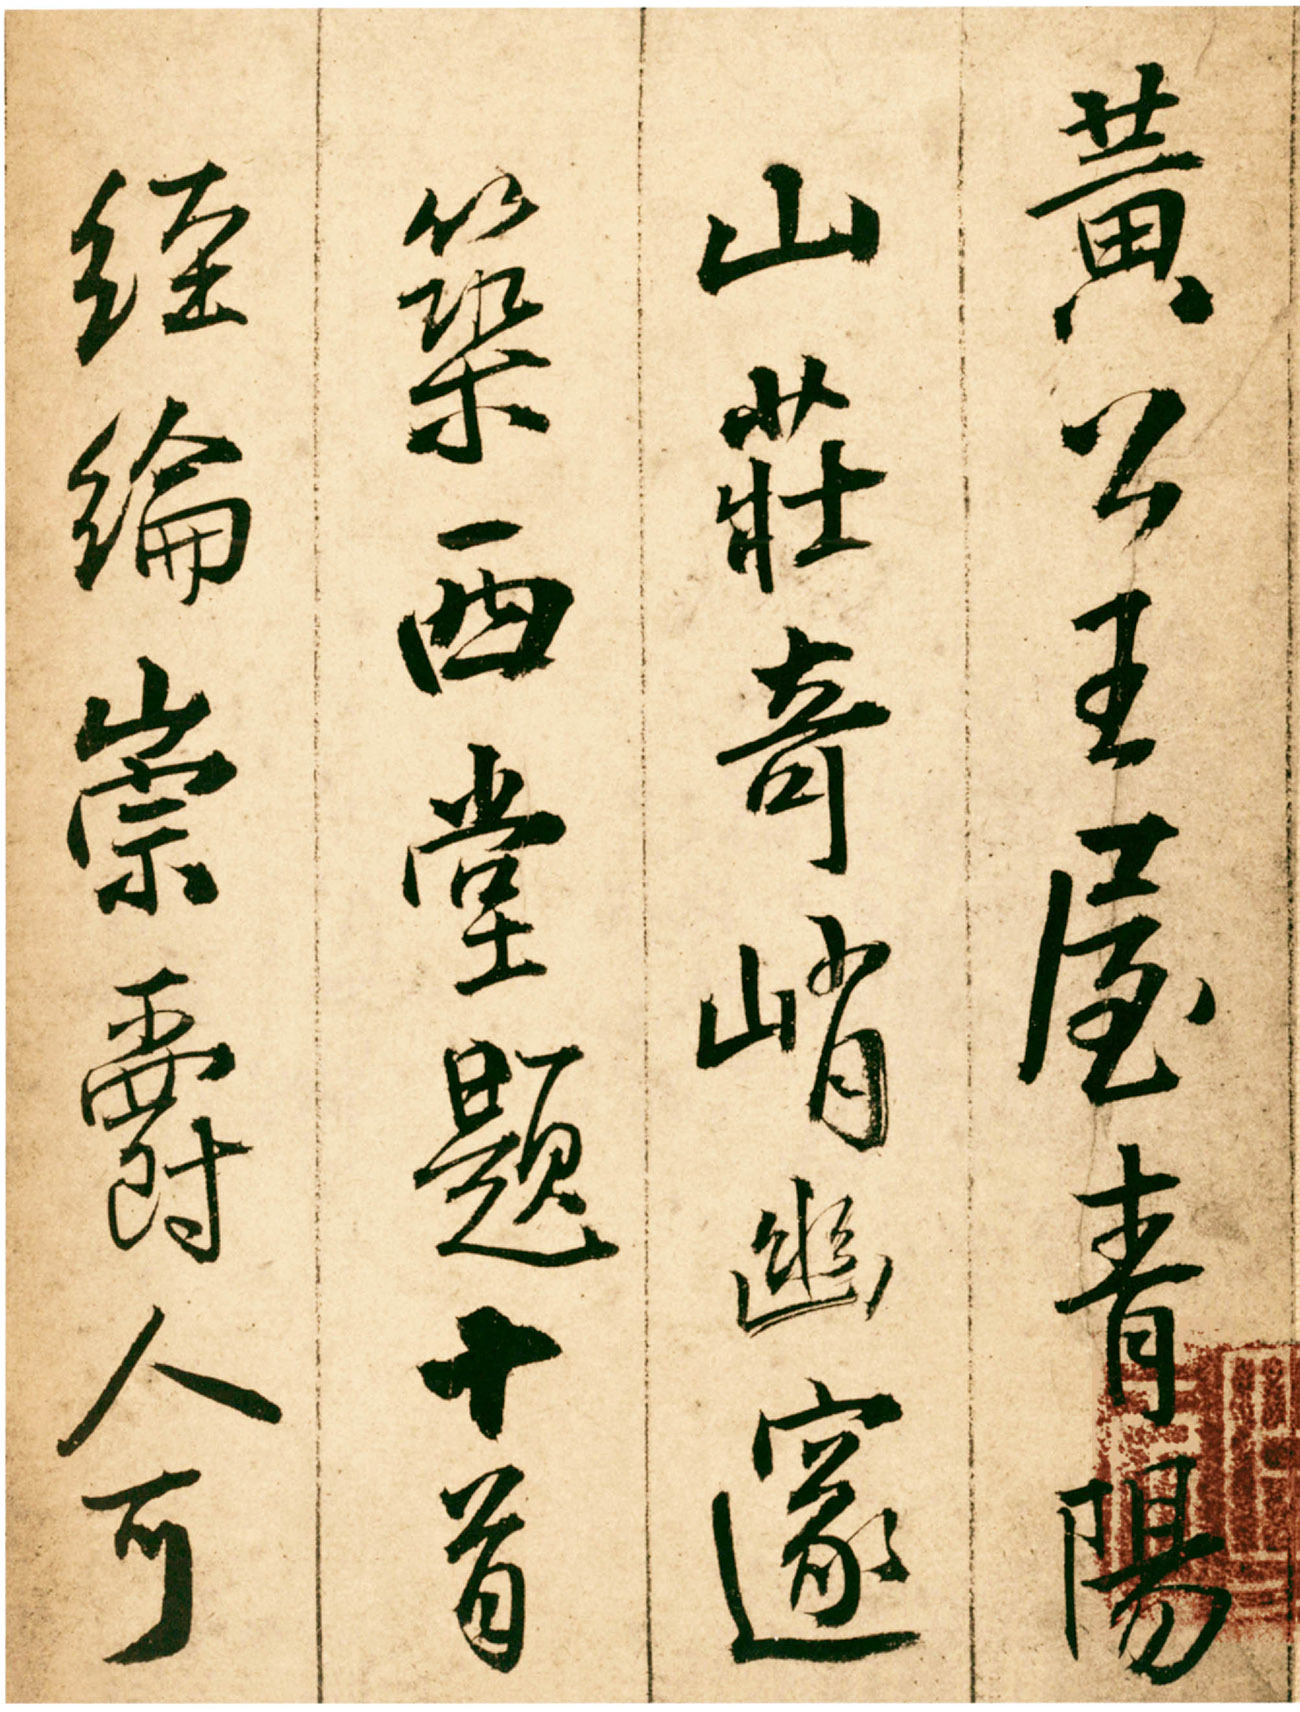 黃公王屋青陽
山莊奇峭幽邃
築西堂題十首
經綸崇爵人可